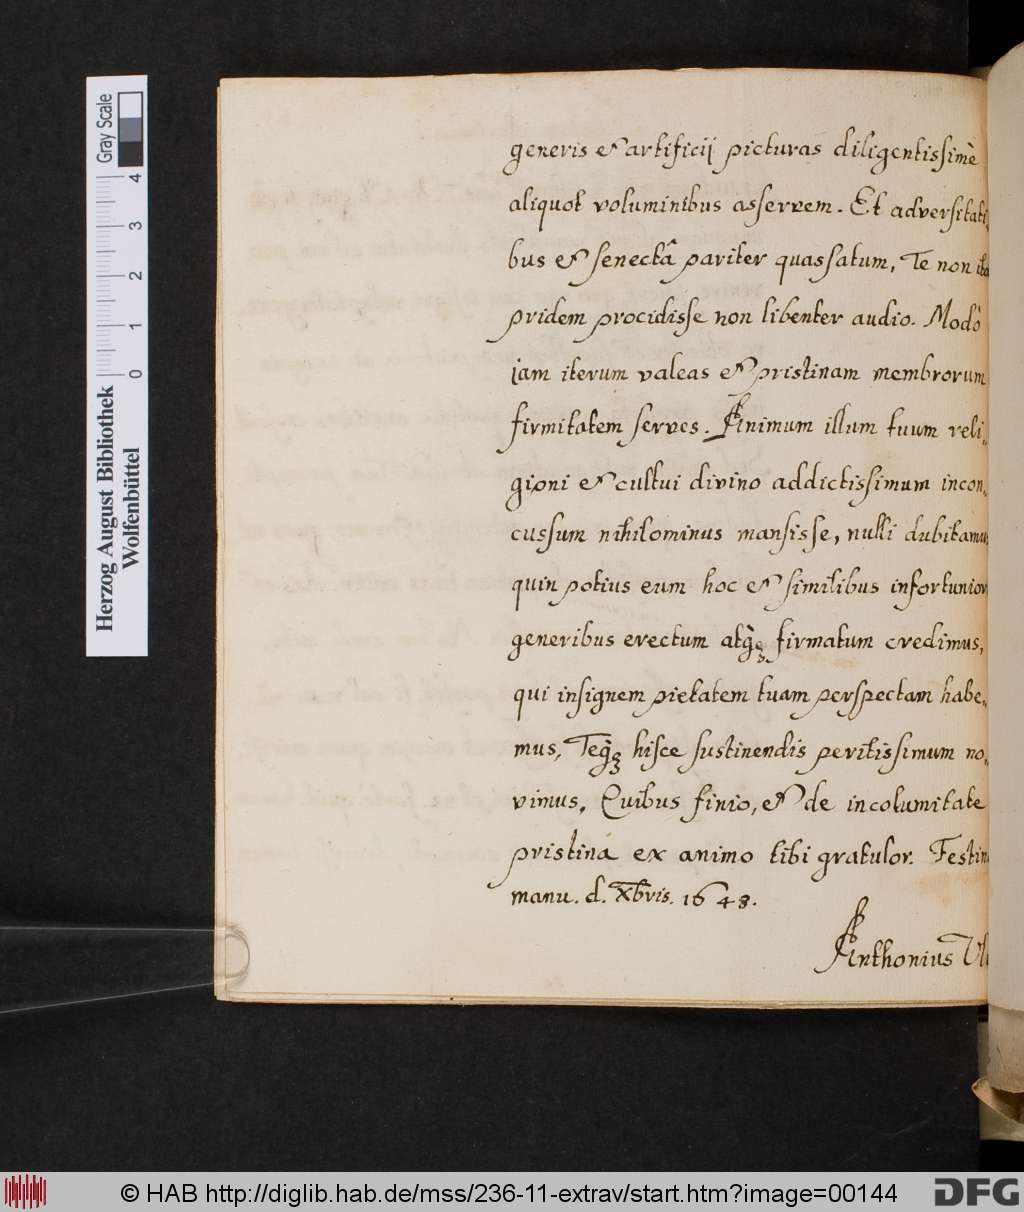 generis et artificij picturas diligentissimè
aliquot voluminibus asservem. Et adversitati
bus et senectâ pariter quassatum, Te non ita
pridem procidisse non libenter audio. Modò
jam iterum valeas et pristinam membrorum
firmitatem serves. Animum illum tuum reli,,
gioni et cultui divino addictissimum incon,,
cussum nihilominus mansisse, nulli dubitamus
quin potius eum hoc et similibus infortunior
generibus erectum atq́ꝫ firmatum credimus,
qui insignem pietatem tuam perspectam habe,,
mus, Teq́ꝫ hisce sustinendis peritissimum no,,
vimus. Quibus finio, et de incolumitate
pristina ex animo tibi gratulor. Festin
manu. d. Xbris. 1648.
Anthonius Ul
Herzog August Bibliothek
Wolfenbüttel
0 1 2 3 4
Gray Scale
© HAB http://diglib.hab.de/mss/236-11-extrav/start.htm?image=00144
DFG